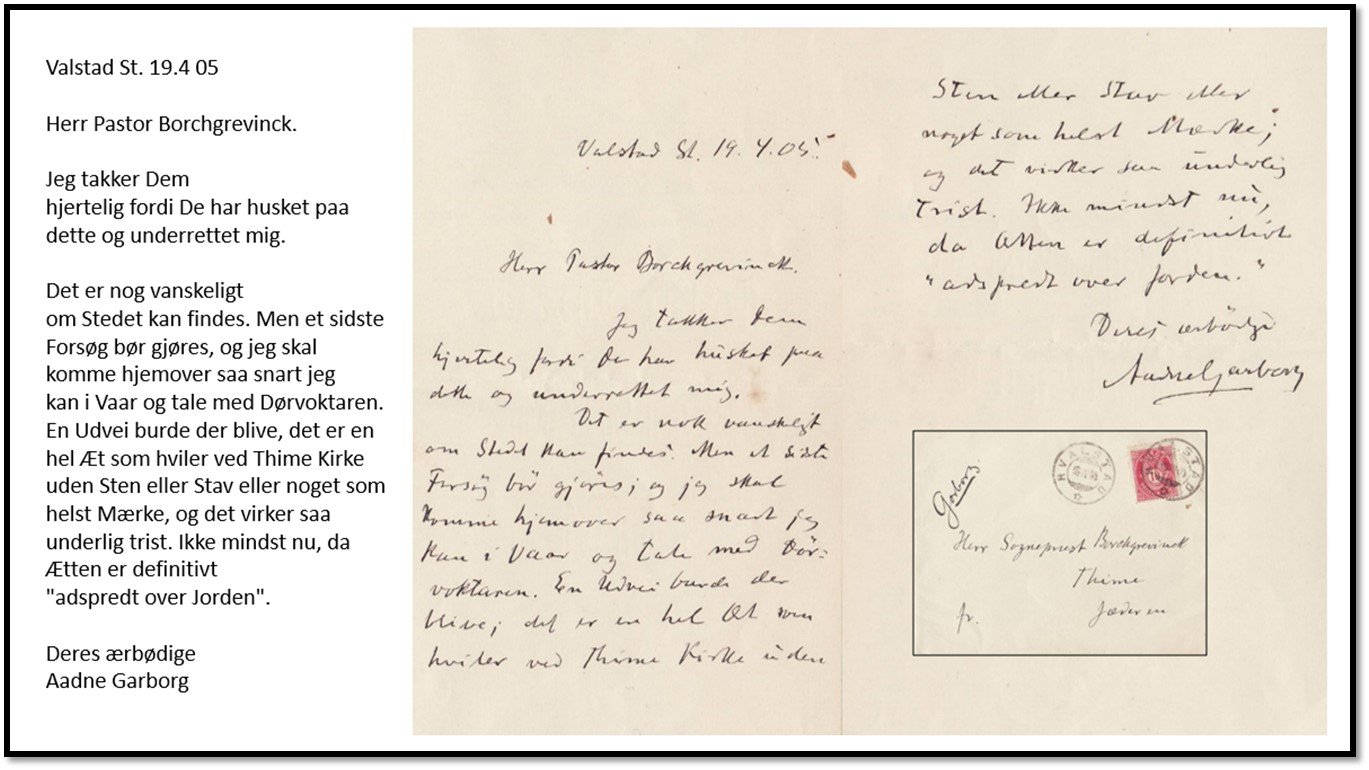 Valstad St. 19.4 05
Herr Pastor Borchgrevinck.
Jeg takker Dem
hjertelig fordi De har husket paa
dette og underrettet mig.
Det er nog vanskeligt
om Stedet kan findes. Men et sidste
Forsøg bør gjøres, og jeg skal
komme hjemover saa snart jeg
kan i Vaar og tale med Dørvoktaren.
En Udvei burde der blive, det er en
hel Æt som hviler ved Thime Kirke
uden Sten eller Stav eller noget som
helst Mærke, og det virker saa
underlig trist. Ikke mindst nu, da
Ætten er definitivt
"adspredt over Jorden".
Deres ærbødige
Aadne Garborg
Valstad St. 19.4.05.
Herr Pastor Borchgrevinck.
Jeg takker Dem
hjertelig fordi De har husket paa
dette og underrettet mig.
Det er nok vanskeligt
om Stedet kan findes. Men et sidste
Forsøg bør gjøres; og jeg skal
komme hjemover saa snart jeg
kan i Vaar og tale med Dør-
voktaren. En Udvei burde der
blive; det er en hel Æt som
hviler ved Thime Kirke uden
Sten eller Stav eller
noget som helst Mærke;
og det virker saa underlig
trist. Ikke mindst nu,
da Ætten er definitivt
"adspredt over Jorden."
Deres ærbødige
Aadne Garborg
HVALSTAD
HVALSTAD
Garborg.
Herr Sogneprest Borchgrevinck
Thime
fr.
Jæderen